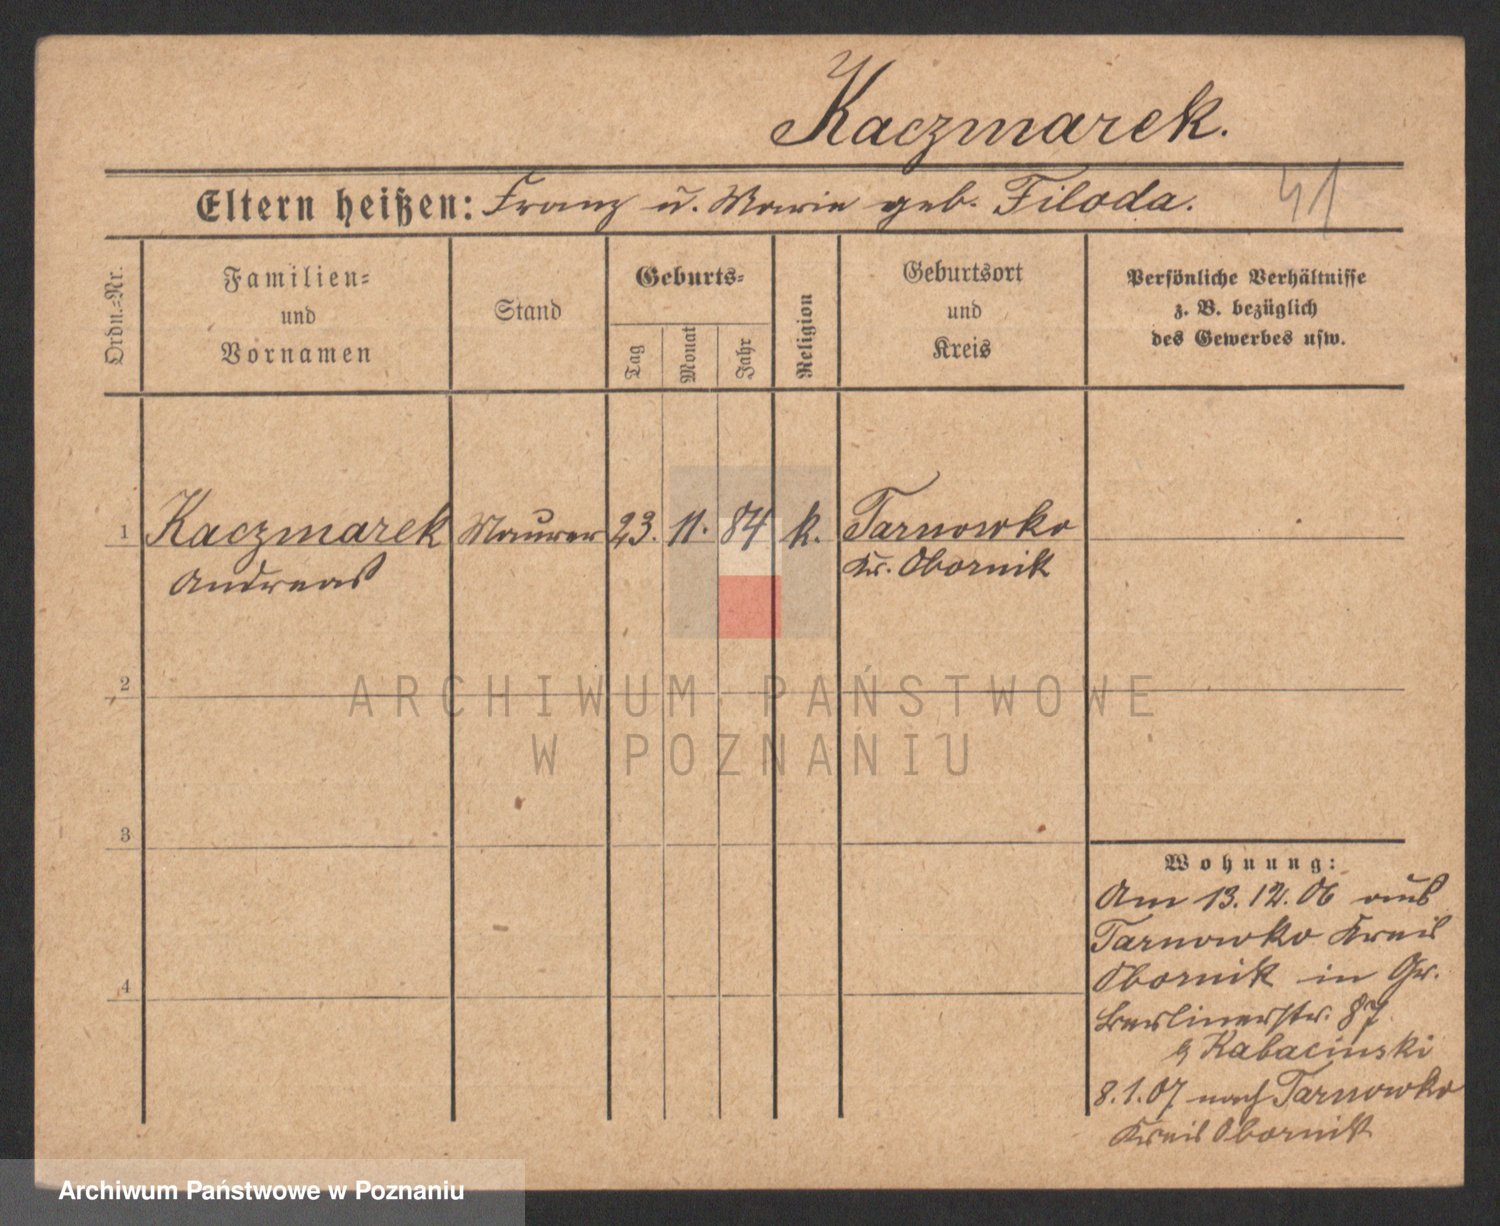 Kaczmarek.
Eltern heißen: Franz u. Marie geb. Filoda.
41
Ordn.-Nr.
Familien-
und
Vornamen
Stand
Geburts-
Tag
Monat
Jahr
Religion
Geburtsort
und
Kreis
Persönliche Verhältnisse
z. B. bezüglich
des Gewerbes usw.
1 Kaczmarek Maurer 23. 11. 84 k. Tarnowko
Andreas Kr. Obornik
2
ARCHIWUM PAŃSTWOWE
W POZNANIU
3
Wohnung:
Am 13.12.06 aus
Tarnowko Kreis
Obornik in Gr.
Berlinerstr. 87
b Kabacinski
8.1.07 nach Tarnowko
Kreis Obornik
4
Archiwum Państwowe w Poznaniu